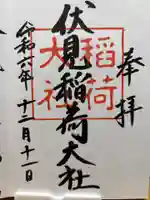 奉拝
伏見稲荷大社
稲荷
大社
令和六年十二月十一日